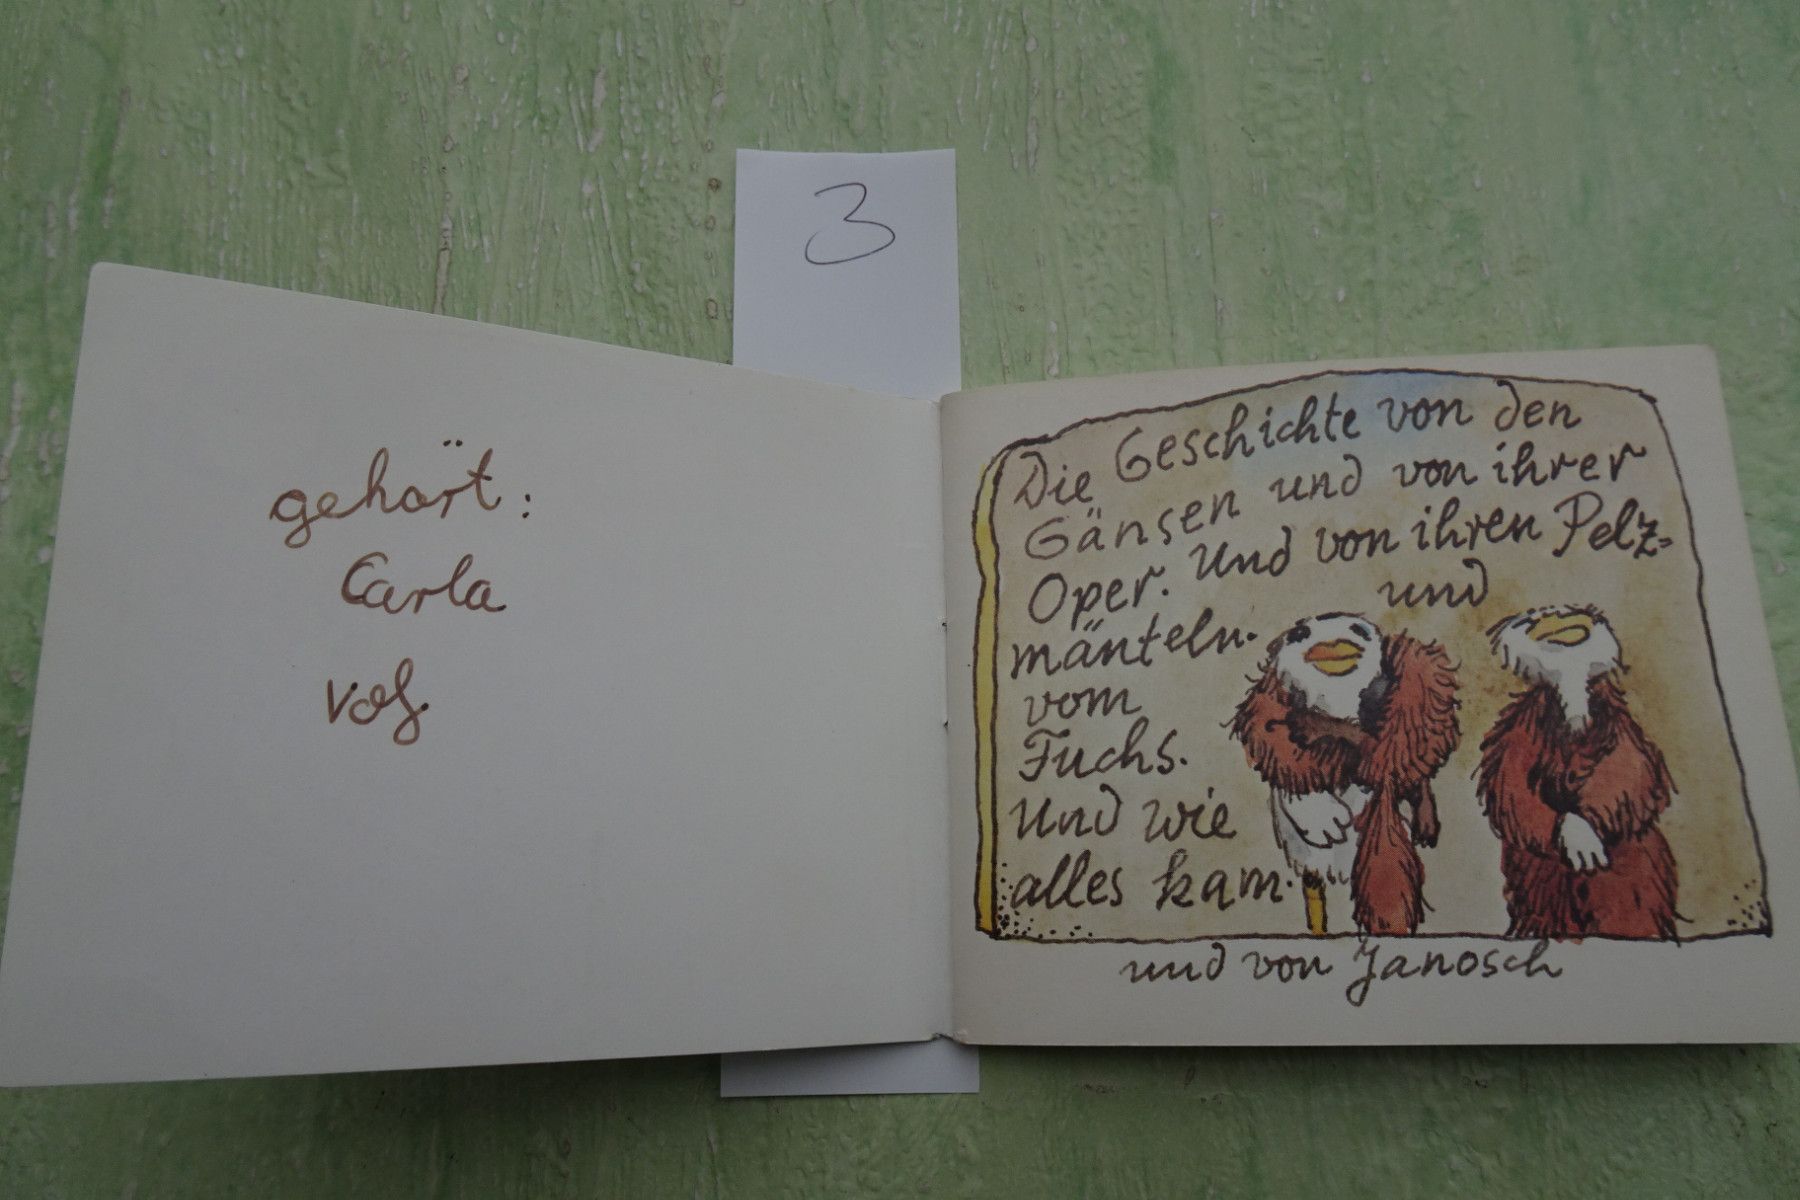 3
gehört:
Carla
Die Geschichte von den
Gänsen und von ihrer
Oper. Und von ihren Pelz=
mänteln. und
vom
Fuchs.
Und wie
alles kam.
und von Janosch